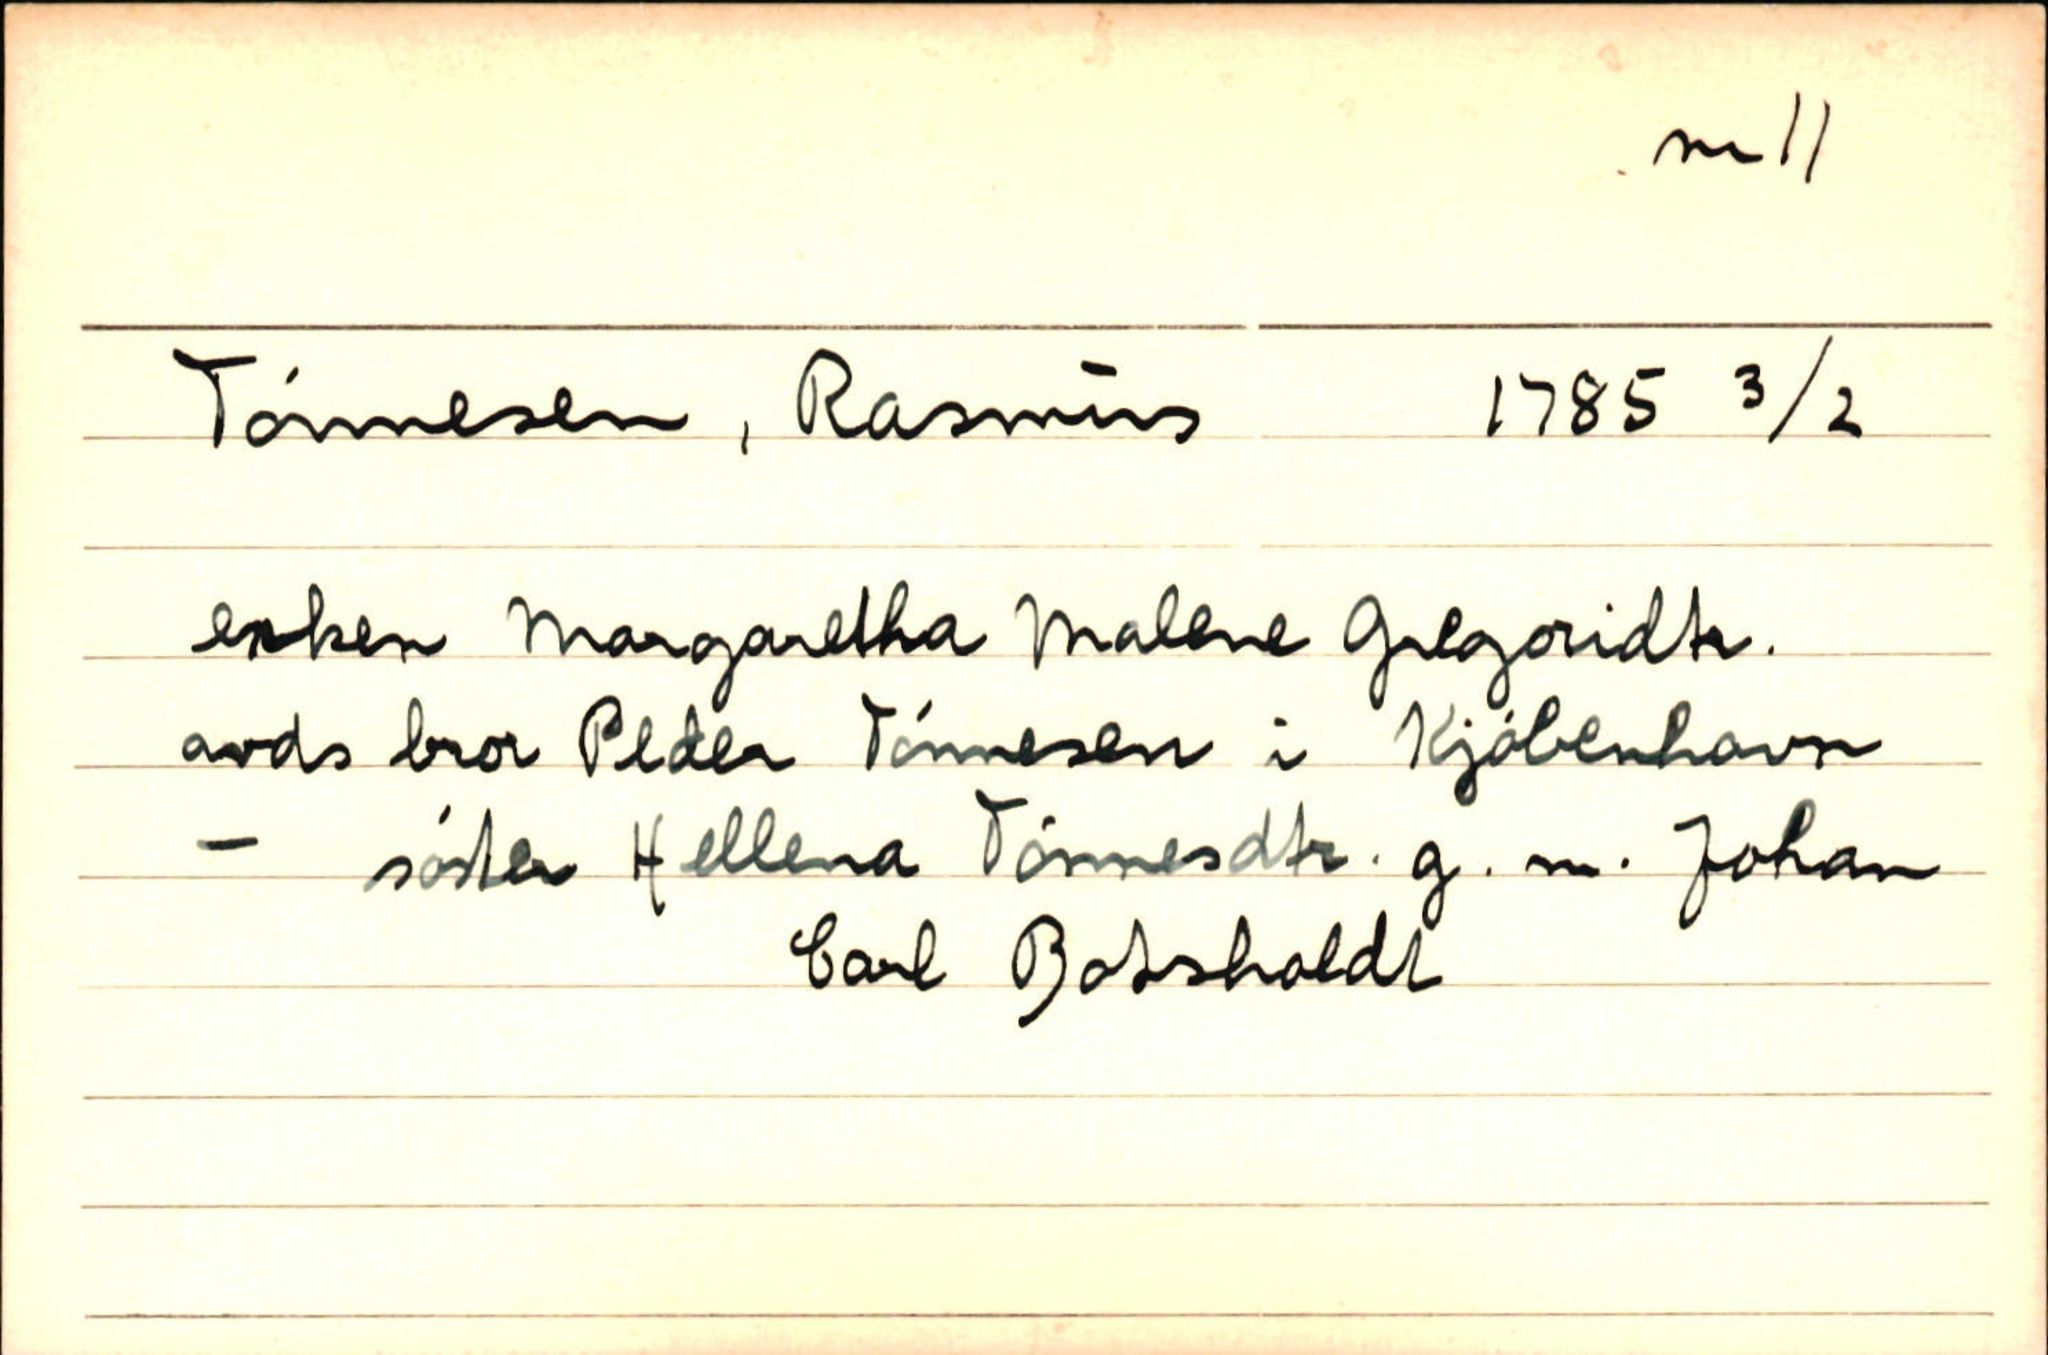 nr 11
Tónnesen, Rasmus 1785 3/2
enken Margaretha Malene Gregoridtr.
avds bror Peder Tónnesen i Kjóbenhavn
— sóster Hellena Tónnesdtr. g. m. Johan
Carl Botsholdt